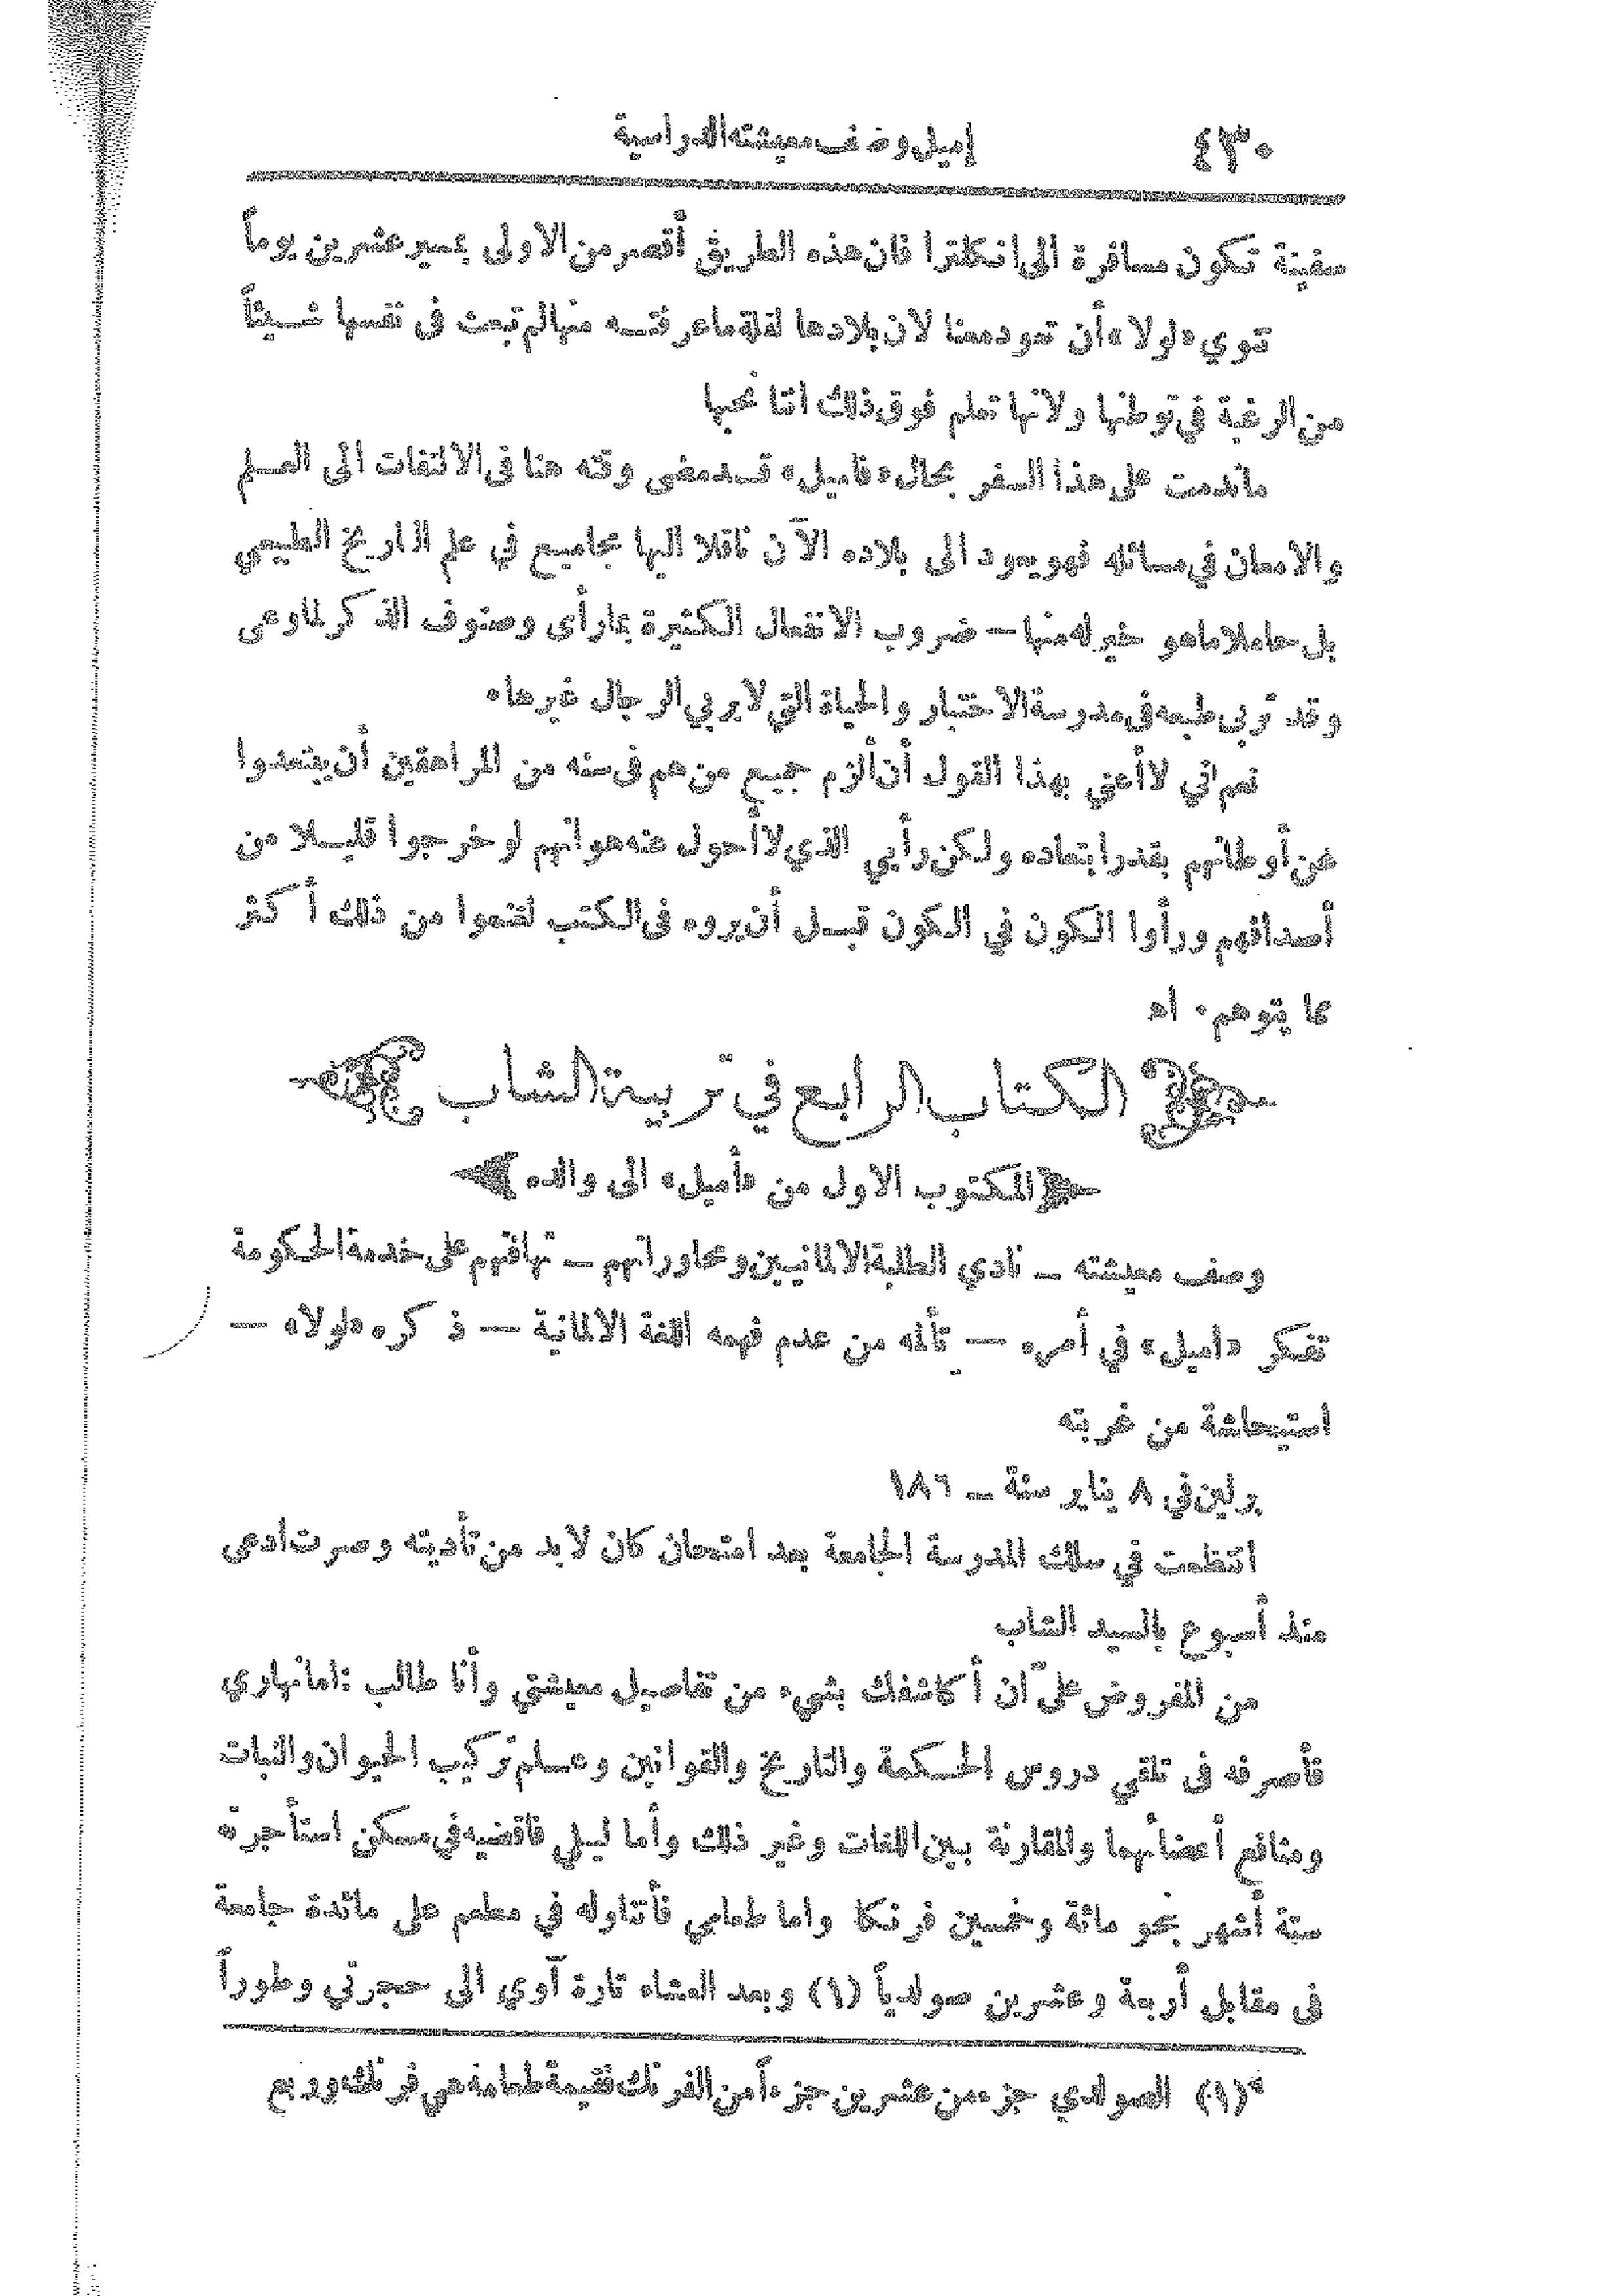 ٤٣٠ إميل وصف معيشته الدراسية
سفينة تكون مسافرة الى انكلترا فان هذه الطريق أقصر من الاولى بمسير عشرين يوماً
تنوي «لولا» أن تعود معنا لان بلادها لقلة ما عرفته منها لم تبعث في نفسها شيئاً
من الرغبة في توطنها ولانها تعلم فوق ذلك اننا نحبها
ما ندمت على هذا السفر بحال «فأميل» قد مضى وقته هنا في الالتفات الى العلم
والامعان في مسائله فهو يعود الى بلاده الآن ناقلا اليها مجاميع في علم التاريخ الطبيعي
بل حاملا ما هو خير له منها — ضروب الانفعال الكثيرة بما رأى وصنوف الذكر لما وعى
وقد تربى طبعه في مدرسة الاختبار والحياة التي لا يربي الرجال غيرها.
نعم اني لا أعني بهذا القول أن ألزم جميع من هم في سنه من المراهقين أن يبتعدوا
عن أوطانهم بقدر ابتعاده ولكن رأيي الذي لا أحول عنه هو انهم لو خرجوا قليلا من
أصدافهم ورأوا الكون في الكون قبل أن يروه في الكتب لغنموا من ذلك أكثر
مما يتوهم. اه
الكتاب الرابع في تربية الشاب
المكتوب الاول من «أميل» الى والده
وصف معيشته — نادي الطلبة الالمانيين ومحاوراتهم — تهافتهم على خدمة الحكومة
تفكر «اميل» في أمره — تألمه من عدم فهمه اللغة الالمانية — ذكره «لولا» —
استيحاشة من غربته
برلين في ٨ يناير سنة — ١٨٦
انتظمت في سلك المدرسة الجامعة بعد امتحان كان لا بد من تأديته وصرت أدعى
منذ أسبوع بالسيد الشاب
من المفروض عليّ أن أكاشفك بشيء من تفاصيل معيشتي وأنا طالب : اما نهاري
فأصرفه في تلقي دروس الحكمة والتاريخ والقوانين وعلم تركيب الحيوان والنبات
ومنافع أعضائهما والمقارنة بين اللغات وغير ذلك وأما ليلي فاقضيه في مسكن استأجرته
ستة أشهر بنحو مائة وخمسين فرنكا واما طعامي فأتناوله في مطعم على مائدة جامعة
في مقابل أربعة وعشرين صولدياً (١) وبعد العشاء تارة آوي الى حجرتي وطوراً
(١) الصولدي جزء من عشرين جزءاً من الفرنك فقيمة طعامه هي فرنك وربع